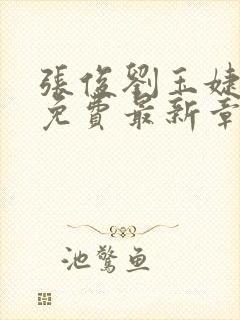 張俊劉玉婕
免費最新章
池驚魚